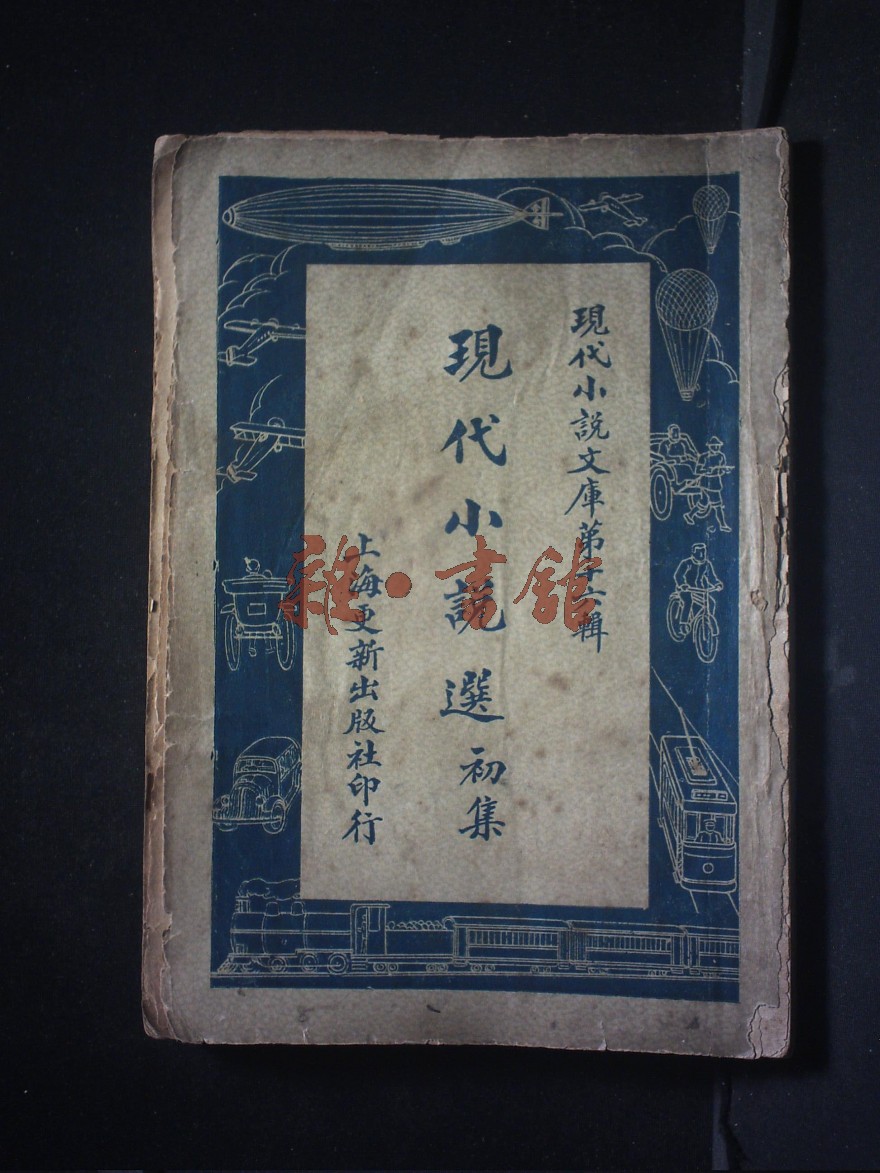 現代小說文庫第十六輯
現代小說選初集
上海更新出版社印行
雜·書館